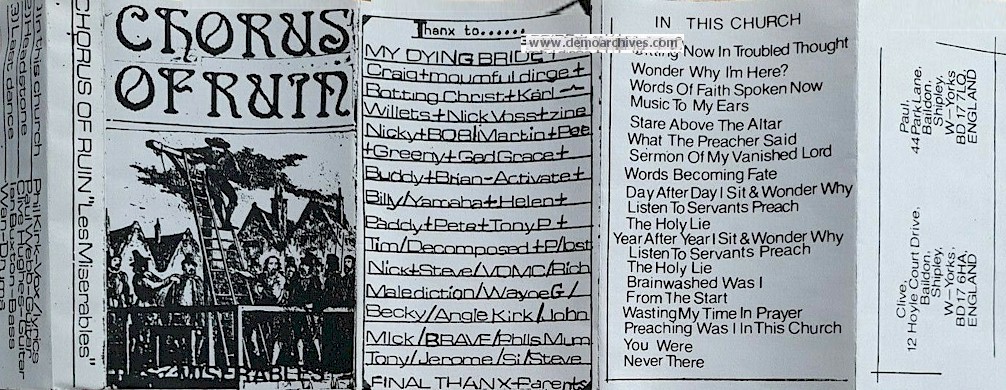 1) In this church
2) Headstone
3) Last dance
Phil Kirk-Vox/Lyrics
Clive Hughes-Guitar
Ian Buxton-Bass
CHORUS OF RUIN "Les Miserables"
CHORUS
OF RUIN
MISERABLES
Thanx to......
MY DYING BRIDE+
Craig+mournful dirge+
Botting Christ+Karl
Willets+Nick Voss+zine
Nicky+BOB/Martin+Pee
+Greeny+Ged Grace+
Buddy+Brian-Activate+
Billy/Yamaha+Helen+
Paddy+Pete+Tony P+
Tim/Decomposed+P/ost
Nick+Steve/VDMC/Rich
Malediction/WayneG/
Becky/Angle Kirk/John
Mick/BRAVE/Phils Mum
Tony/Jerome/Si/Steve
FINAL THANX+Parents
www.demoarchives.com
IN THIS CHURCH
Now In Troubled Thought
Wonder Why I'm Here?
Words Of Faith Spoken Now
Music To My Ears
Stare Above The Altar
What The Preacher Said
Sermon Of My Vanished Lord
Words Becoming Fate
Day After Day I Sit & Wonder Why
Listen To Servants Preach
The Holy Lie
Year After Year I Sit & Wonder Why
Listen To Servants Preach
The Holy Lie
Brainwashed Was I
From The Start
Wasting My Time In Prayer
Preaching Was I In This Church
You Were
Never There
Paul.
44 Park Lane,
Baildon,
Shipley,
W-Yorks
BD 17 7LQ,
ENGLAND
Clive,
12 Hoyle Court Drive,
Baildon,
Shipley,
W-Yorks,
BD 17 6HA,
ENGLAND